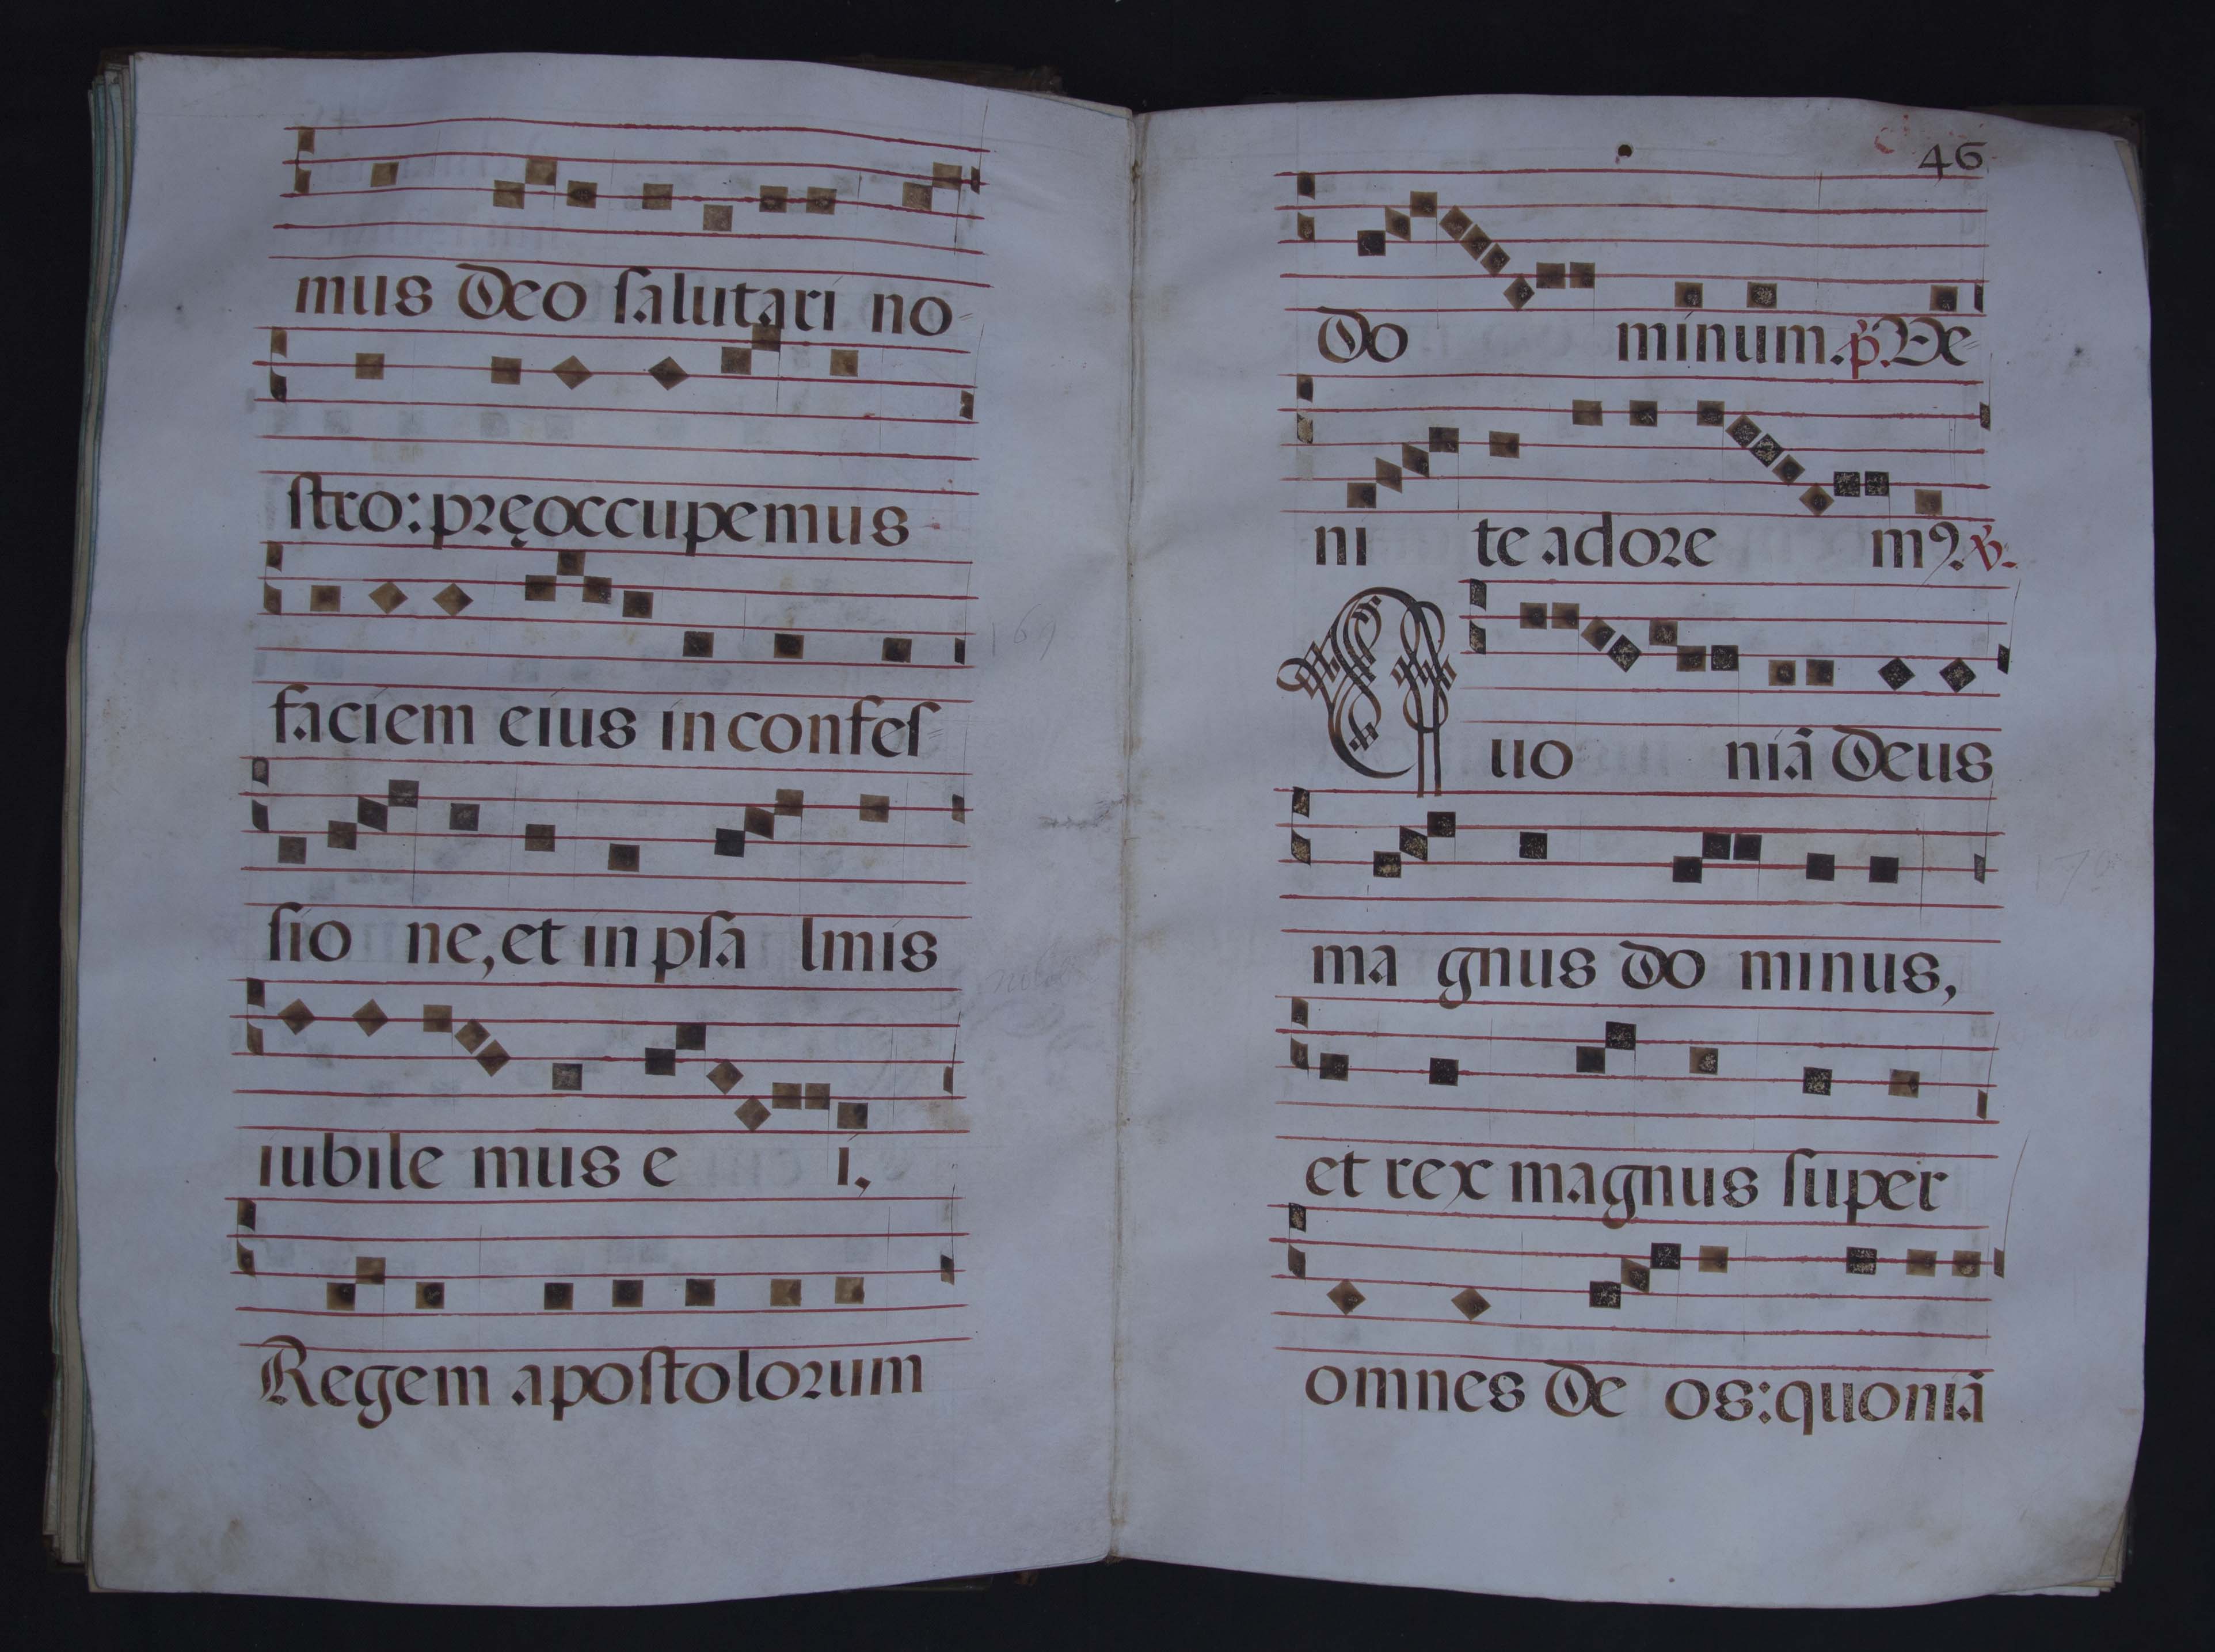 mus Deo salutari no-
stro: pręoccupemus
faciem eius in confes-
sio ne, et in psa lmis
iubile mus e i,
Regem apostolorum
46
Do minum. p̃. Ve-
ni te adore mꝰ. ṽ.
Quo niã Deus
ma gnus Do minus,
et rex magnus super
omnes De os: quoniã